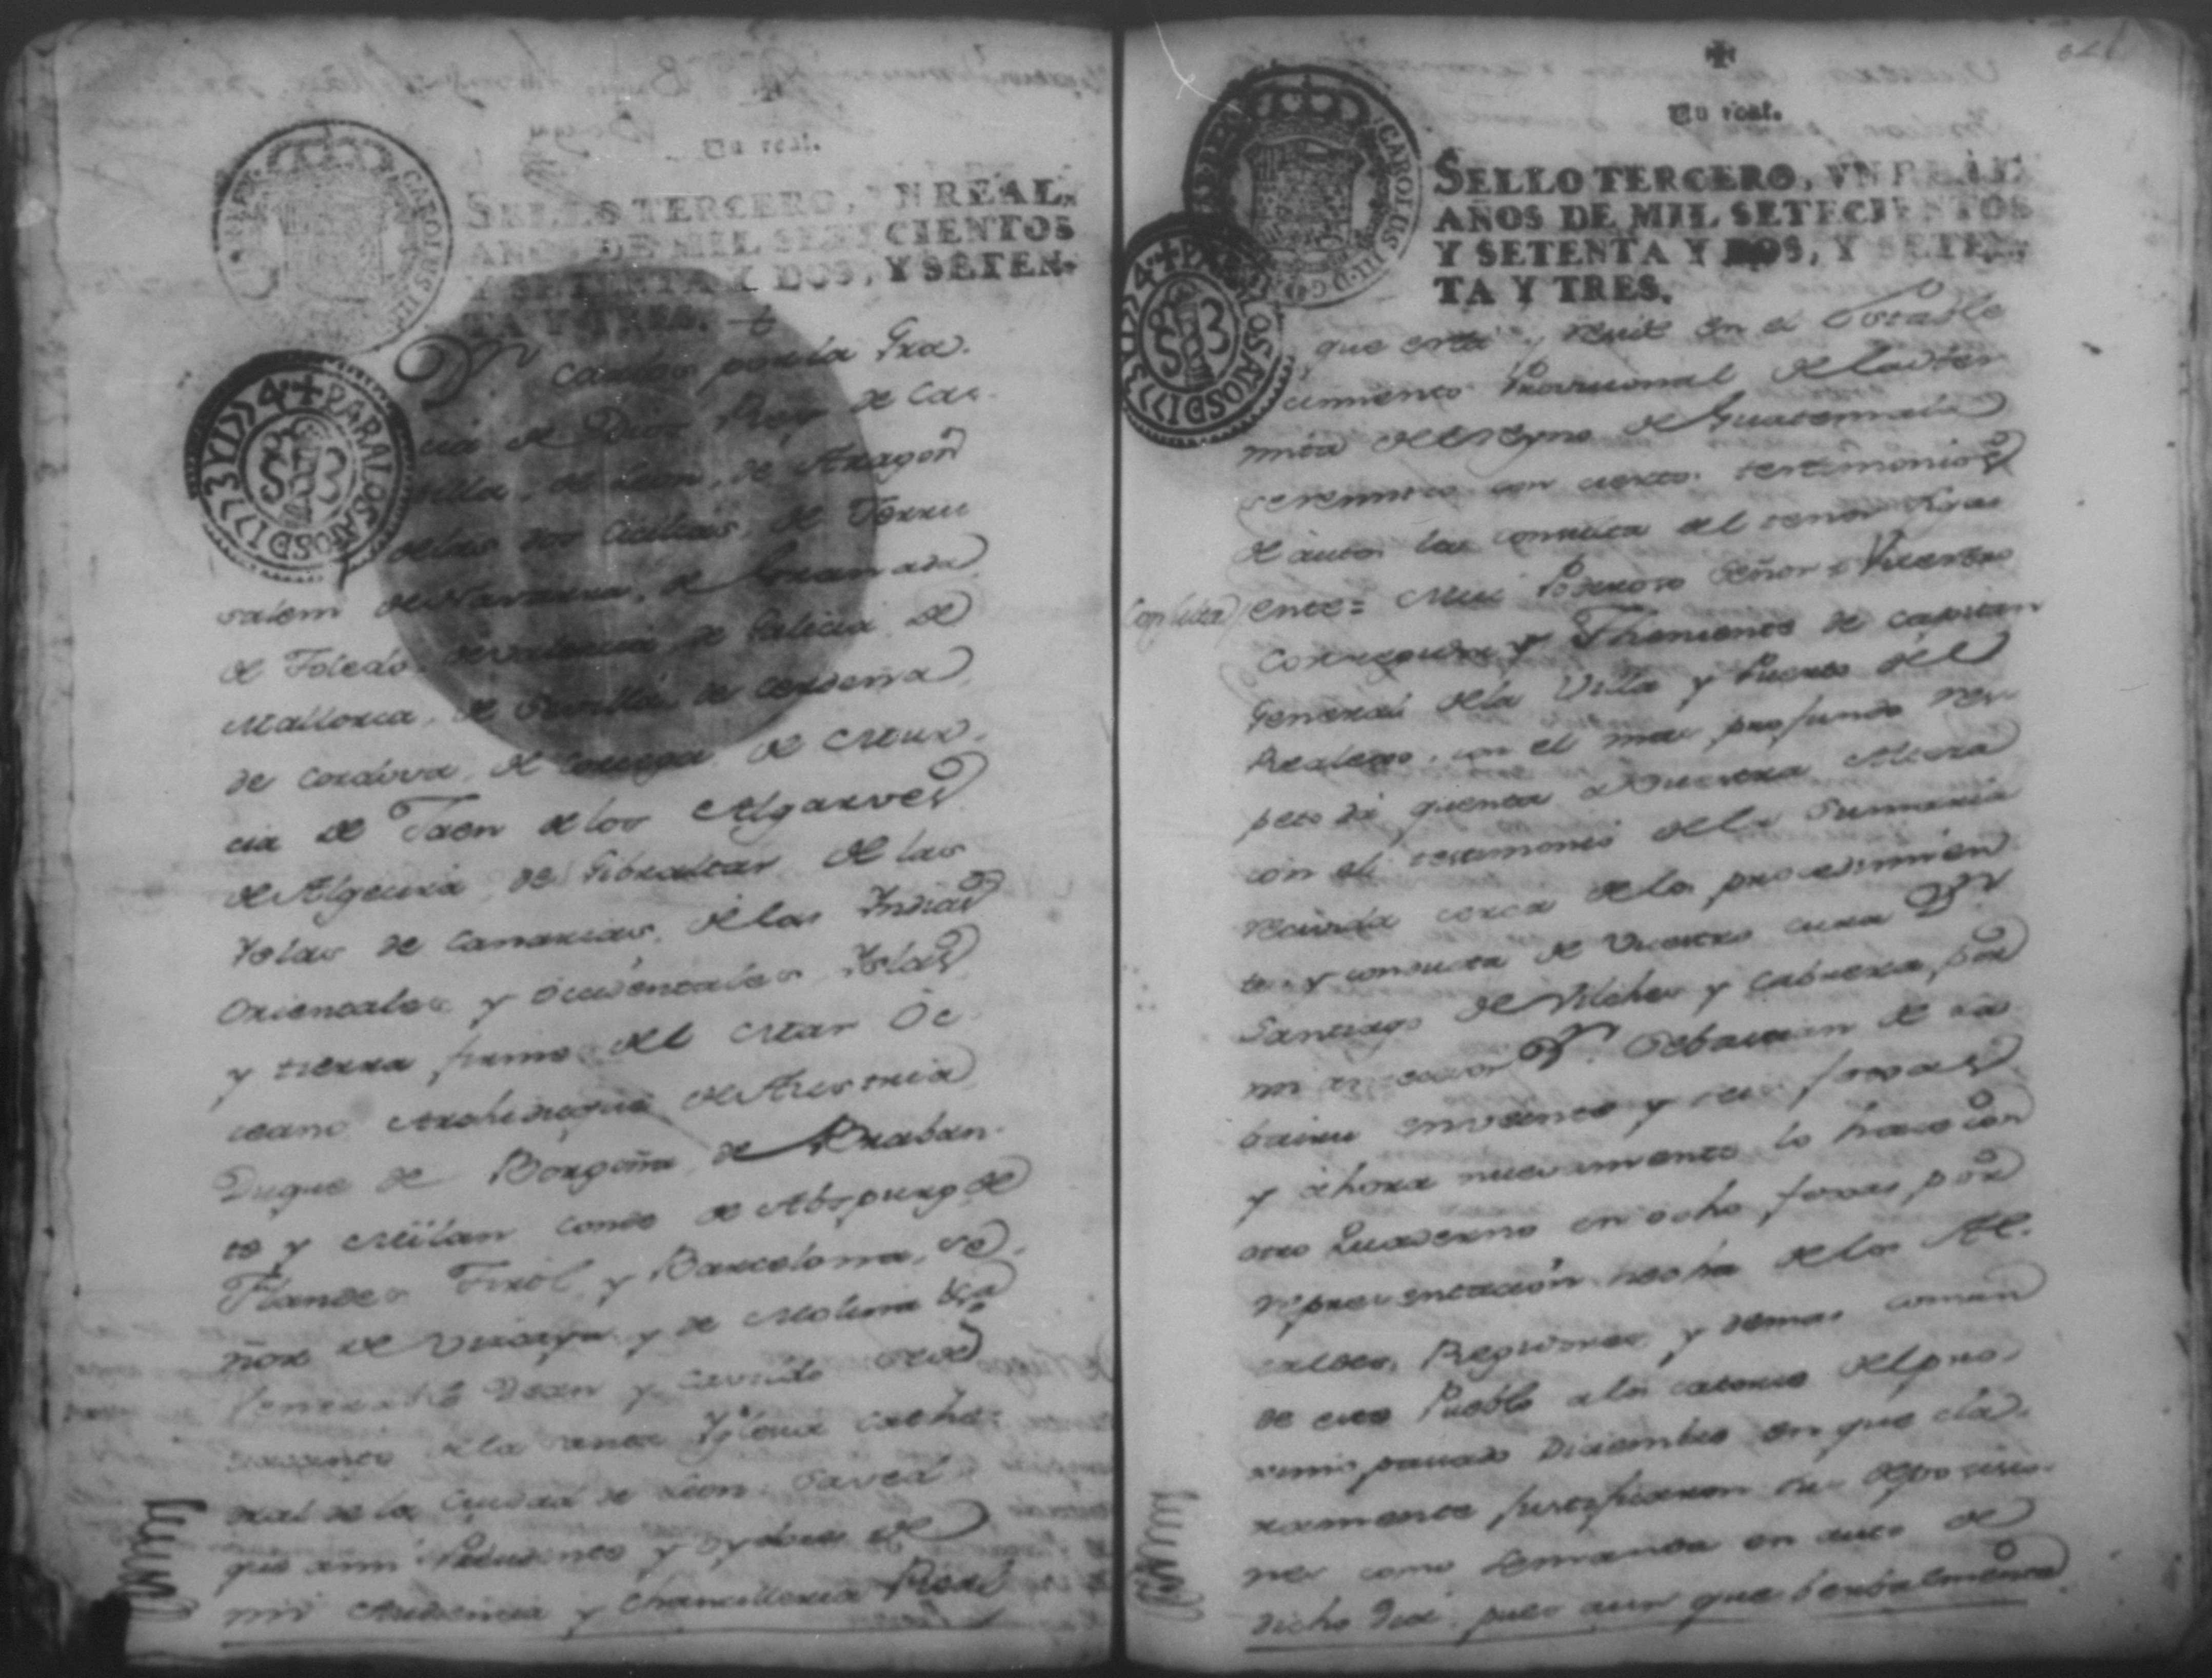 Un real.
SELLO TERCERO, UN REAL,
AÑOS DE MIL SETECIENTOS
Y SETENTA Y DOS, Y SETEN-
TA Y TRES.
PARA LOS AÑOS DE 1773 Y 1774
Dn. Carlos por la Gra-
cia de Dios Rey de Cas-
tilla, de Leon, de Aragon
de las dos Cicilias, de Jerru
salem de Navarra, de Granada
de Toledo, de Valencia de Galicia de
Mallorca, de Sevilla de Cerdeña
de Cordova, de Corsega de Mur-
cia de Jaen de los Algarves
de Algecira de Gibraltar de las
Yslas de Canarias, de las Yndias
Orientales y Occidentales Yslas
y tierra firme del Mar Oc
ceano Archiduque de Austria
Duque de Borgoña, de Braban-
te y Milan Conde de Abspurg de
Flandes Tirol, y Barcelona, Se-
ñor de Viscaya y de Molina &a
Venerable Dean y Cavildo Sede
vacante de la santa Yglecia Cathe-
dral de la Ciudad de Leon: Saved
que ami Presidente y Oydores de
mi Audiencia y Chancilleria Real
Un real.
SELLO TERCERO, UN REAL
AÑOS DE MIL SETECIENTOS
Y SETENTA Y DOS, Y SETEN-
TA Y TRES.
CAROLUS III D G
PARA LOS AÑOS DE 1773 Y 1774
que está y reside en el Estable
cimiento Provicional de la Her
mita del Reyno de Guatemala
se remitio con ciertos testimonios
de autos la consulta del tenor sigui
Consulta ente= Mui Poderoso Señor: Vuestro
Corregidor y Theniente de Capitan
General de la Villa y Puerto del
Realejo, con el mas profundo res-
peto dá quenta a Vuestra Alteza
con el testimonio de la Sumaria
recivida cerca de los procedimien
tos y conducta de Vuestro cura Dn
Santiago de Vilches y Cabrera, por
mi antecesor Dn. Sebastian de
y ahora nuevamente lo hace con
otro Quaderno en ocho foxas por
representacion hecha de los Al-
caldes, Regidores y demas comun
de este Pueblo a los catorce del pro-
ximo pasado Diciembre en que cla-
ramente justificaron
como demanda en auto de
dicho dia, pues aun que berbalmente